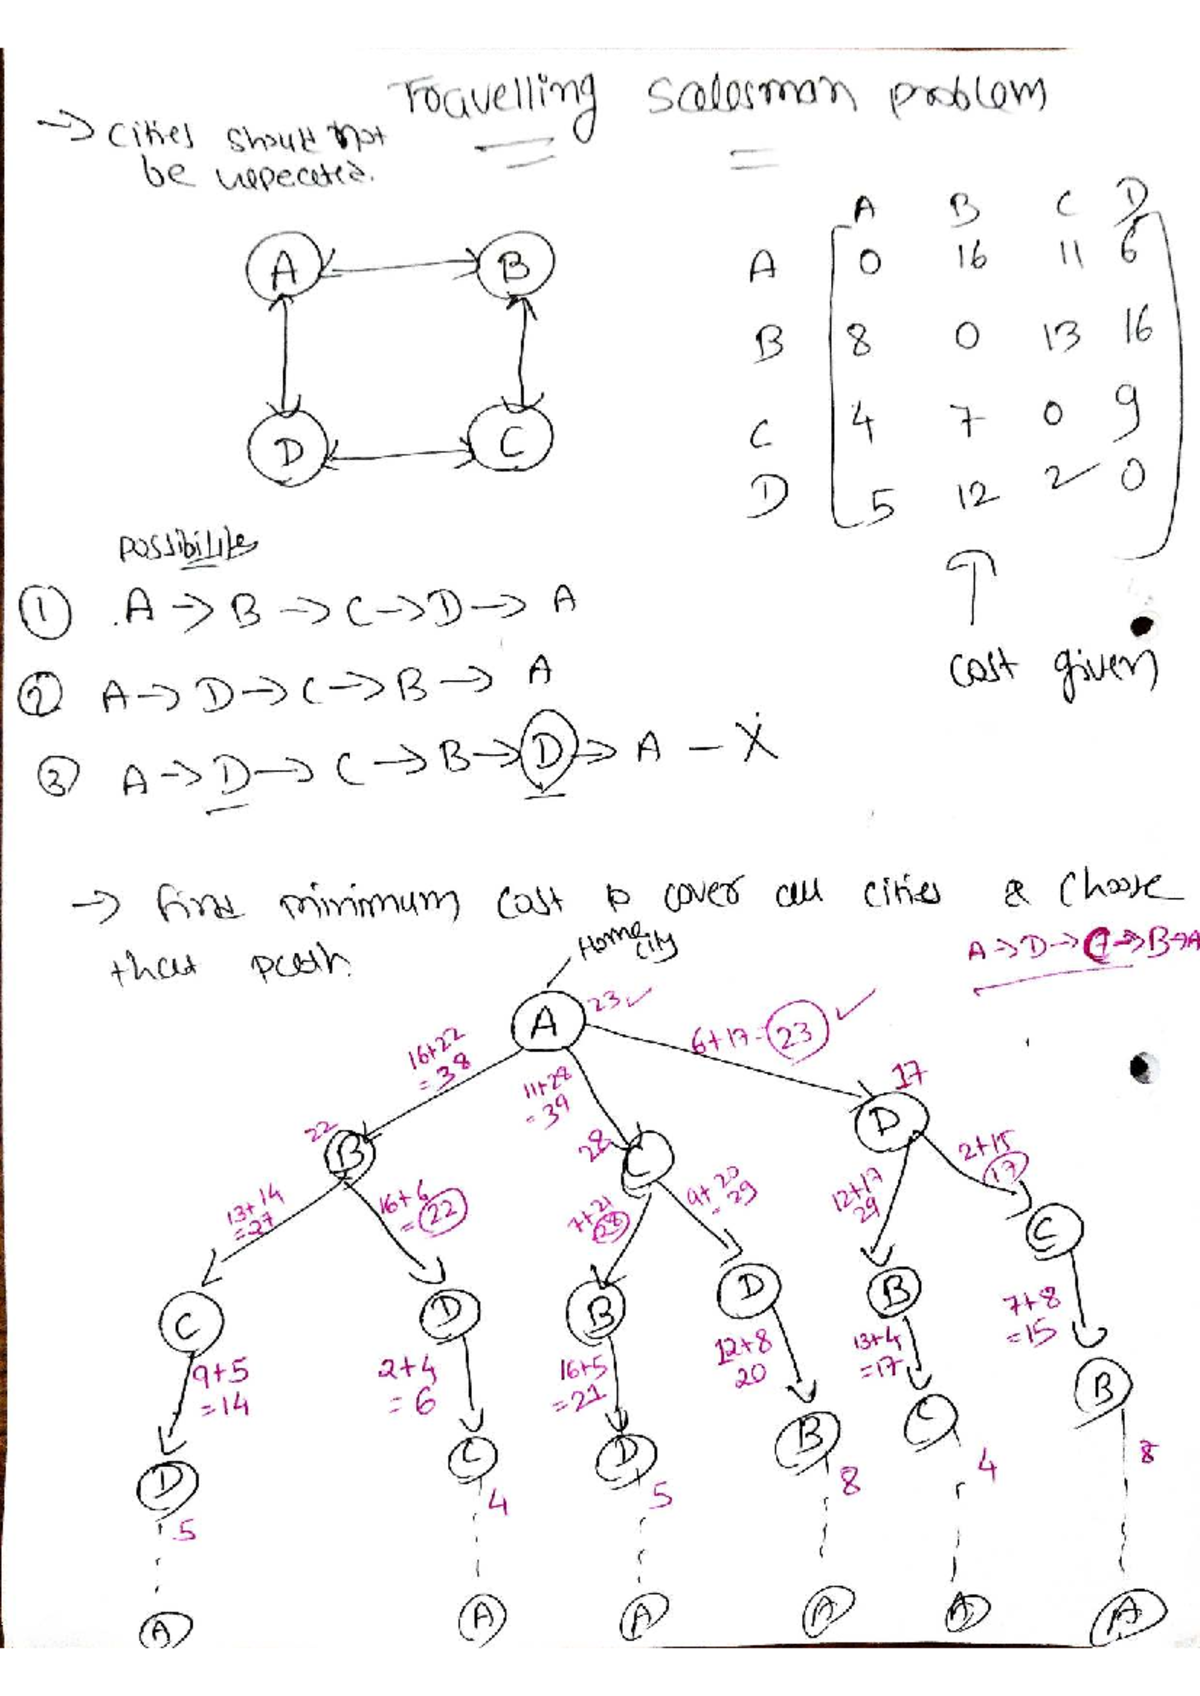 Travelling Salesman problem
→ Cities should not
be repeated.
A B
D C
A B C D
A 0 16 11 6
B 8 0 13 16
C 4 7 0 9
D 5 12 2 0
cost given
possibilites
① A → B → C → D → A
② A → D → C → B → A
③ A → D → C → B → D → A - X
→ find minimum cost to cover all cities & choose
that path.
A → D → C → B → A
Home city
A 23 ✓
16+22
= 38
11+28
= 39
6+17 = 23 ✓
22 B
28 C
17 D
13+14
= 27
16+6
= 22
7+21
28
9+20
= 29
12+17
29
2+15
17
C D B D B C
9+5
= 14
2+4
= 6
16+5
= 21
12+8
20
13+4
= 17
7+8
= 15
D C D B C B
5 4 5 8 4 8
A A A A A A